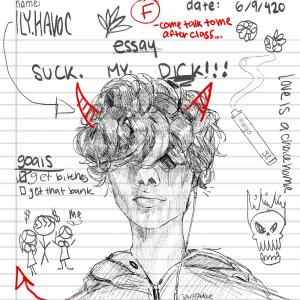 name:
ILY.HAVOC
F
date: 6/9/420
-come talk to me
after class...
essay
SUCK. MY. DICK!!!
love is a chore home
goals
get bitches
get that bank
Me